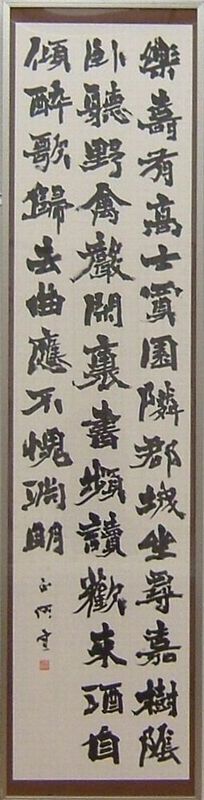 樂壽有高士園隣郡城坐尋嘉樹蔭
臥聽野禽聲閑裏書頻讀歡來酒自
傾醉歌歸去曲應不愧淵明